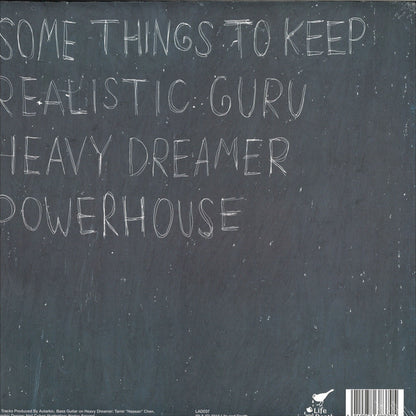 SOME THINGS TO KEEP
REALISTIC GURU
HEAVY DREAMER
POWERHOUSE
Tracks Produced By Autarkic. Bass Guitar on Heavy Dreamer: Tamir "Napsan" Chen.
LAD037
Life